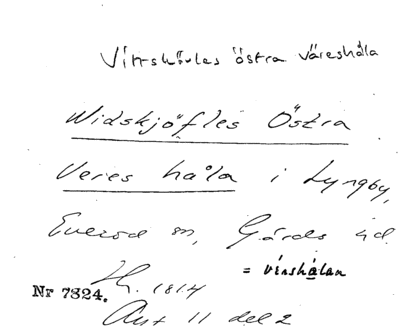 VittsköVles östra väreshåla
Widskjöfles Östra
Veres håla i Lyngby,
Everöd sn, Gärds hd.
= vénshålan
Nr 7824. H. 1814
Akt 11 del 2